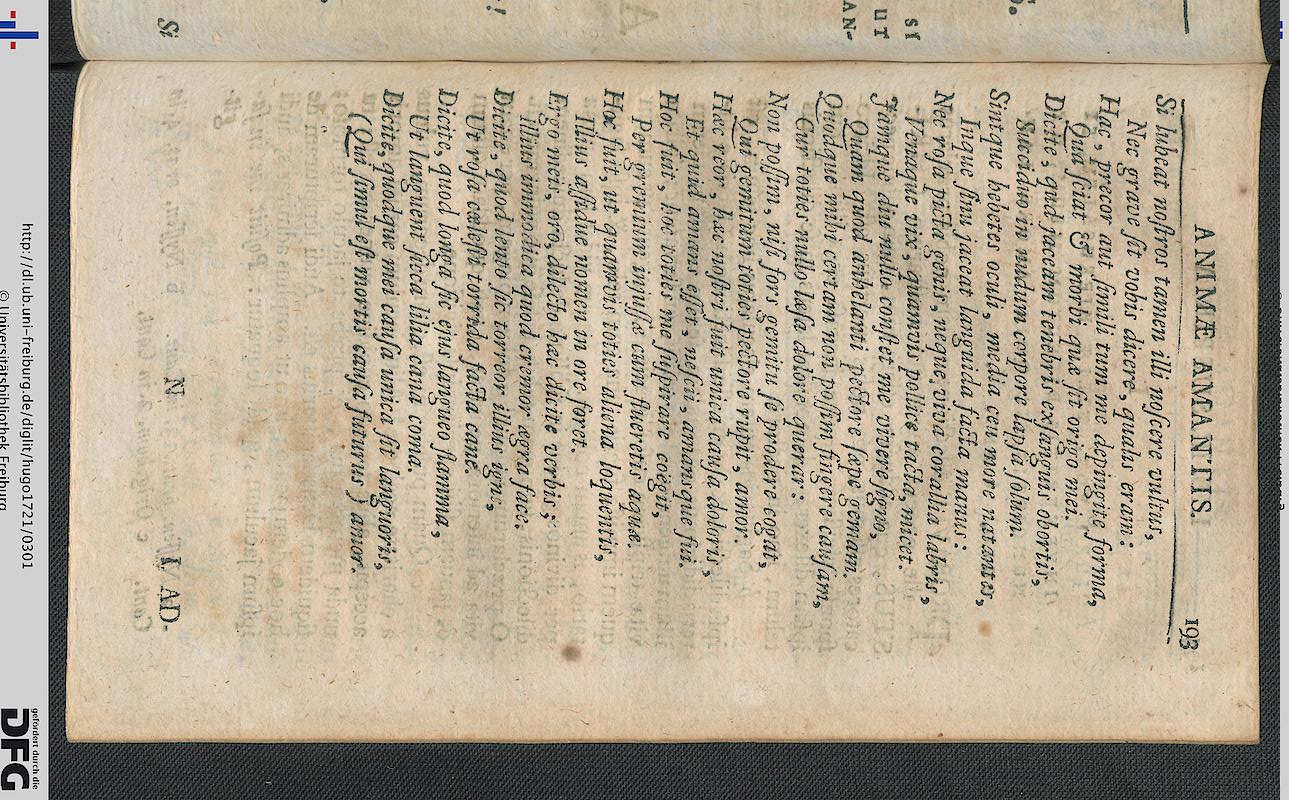 ANIMÆ AMANTIS.
193
Si lubeat nostros tamen illi noscere vultus,
Nec grave sit vobis dicere, qualis eram:
Hac, precor aut simili tum me depingite forma,
Qua sciat & morbi quæ sit origo mei.
Dicite, quod jaceam tenebris exsanguis obortis,
Succiduo in nudum corpore lapsa solum.
Sintque hebetes oculi, media ceu morte natantes,
Inque sinu jaceat languida facta manus:
Nec rosa picta genis, neque viva corallia labris,
Venaque vix, quamvis pollice tacta, micet.
Jamque diu nullo constet me vivere signo,
Quam quod anhelanti pectore sæpe gemam.
Quodque mihi certam non possim fingere causam,
Cur toties nullo læsa dolore querar:
Non possim, nisi fors gemitu se prodere cogat,
Qui gemitum toties pectore rupit, amor.
Hæc reor, hæc nostri fuit unica causa doloris,
Et quid amans essem, nescii, amansque fui.
Hoc fuit, hoc toties me suspirare coëgit,
Per gremium injussæ cum flueretis aquæ.
Hoc fuit, ut quamvis toties aliena loquentis,
Illius assidue nomen in ore foret.
Ergo meis, oro, dilecto hæc dicite verbis;
Illius immodica quod cremor ægra face.
Dicite, quod lento sic torreor illius igni,
Ut rosa cœlesti torrida facta cane.
Dicite, quod longa sic ejus langueo flamma,
Ut languent sicca lilia cana coma.
Dicite, quodque mei causa unica sit languoris,
(Qui simul est mortis causa futurus) amor.
N
AD-
SI
UT
AN-
http://dl.ub.uni-freiburg.de/diglit/hugo1721/0301
© Universitätsbibliothek Freiburg
gefördert durch die
DFG